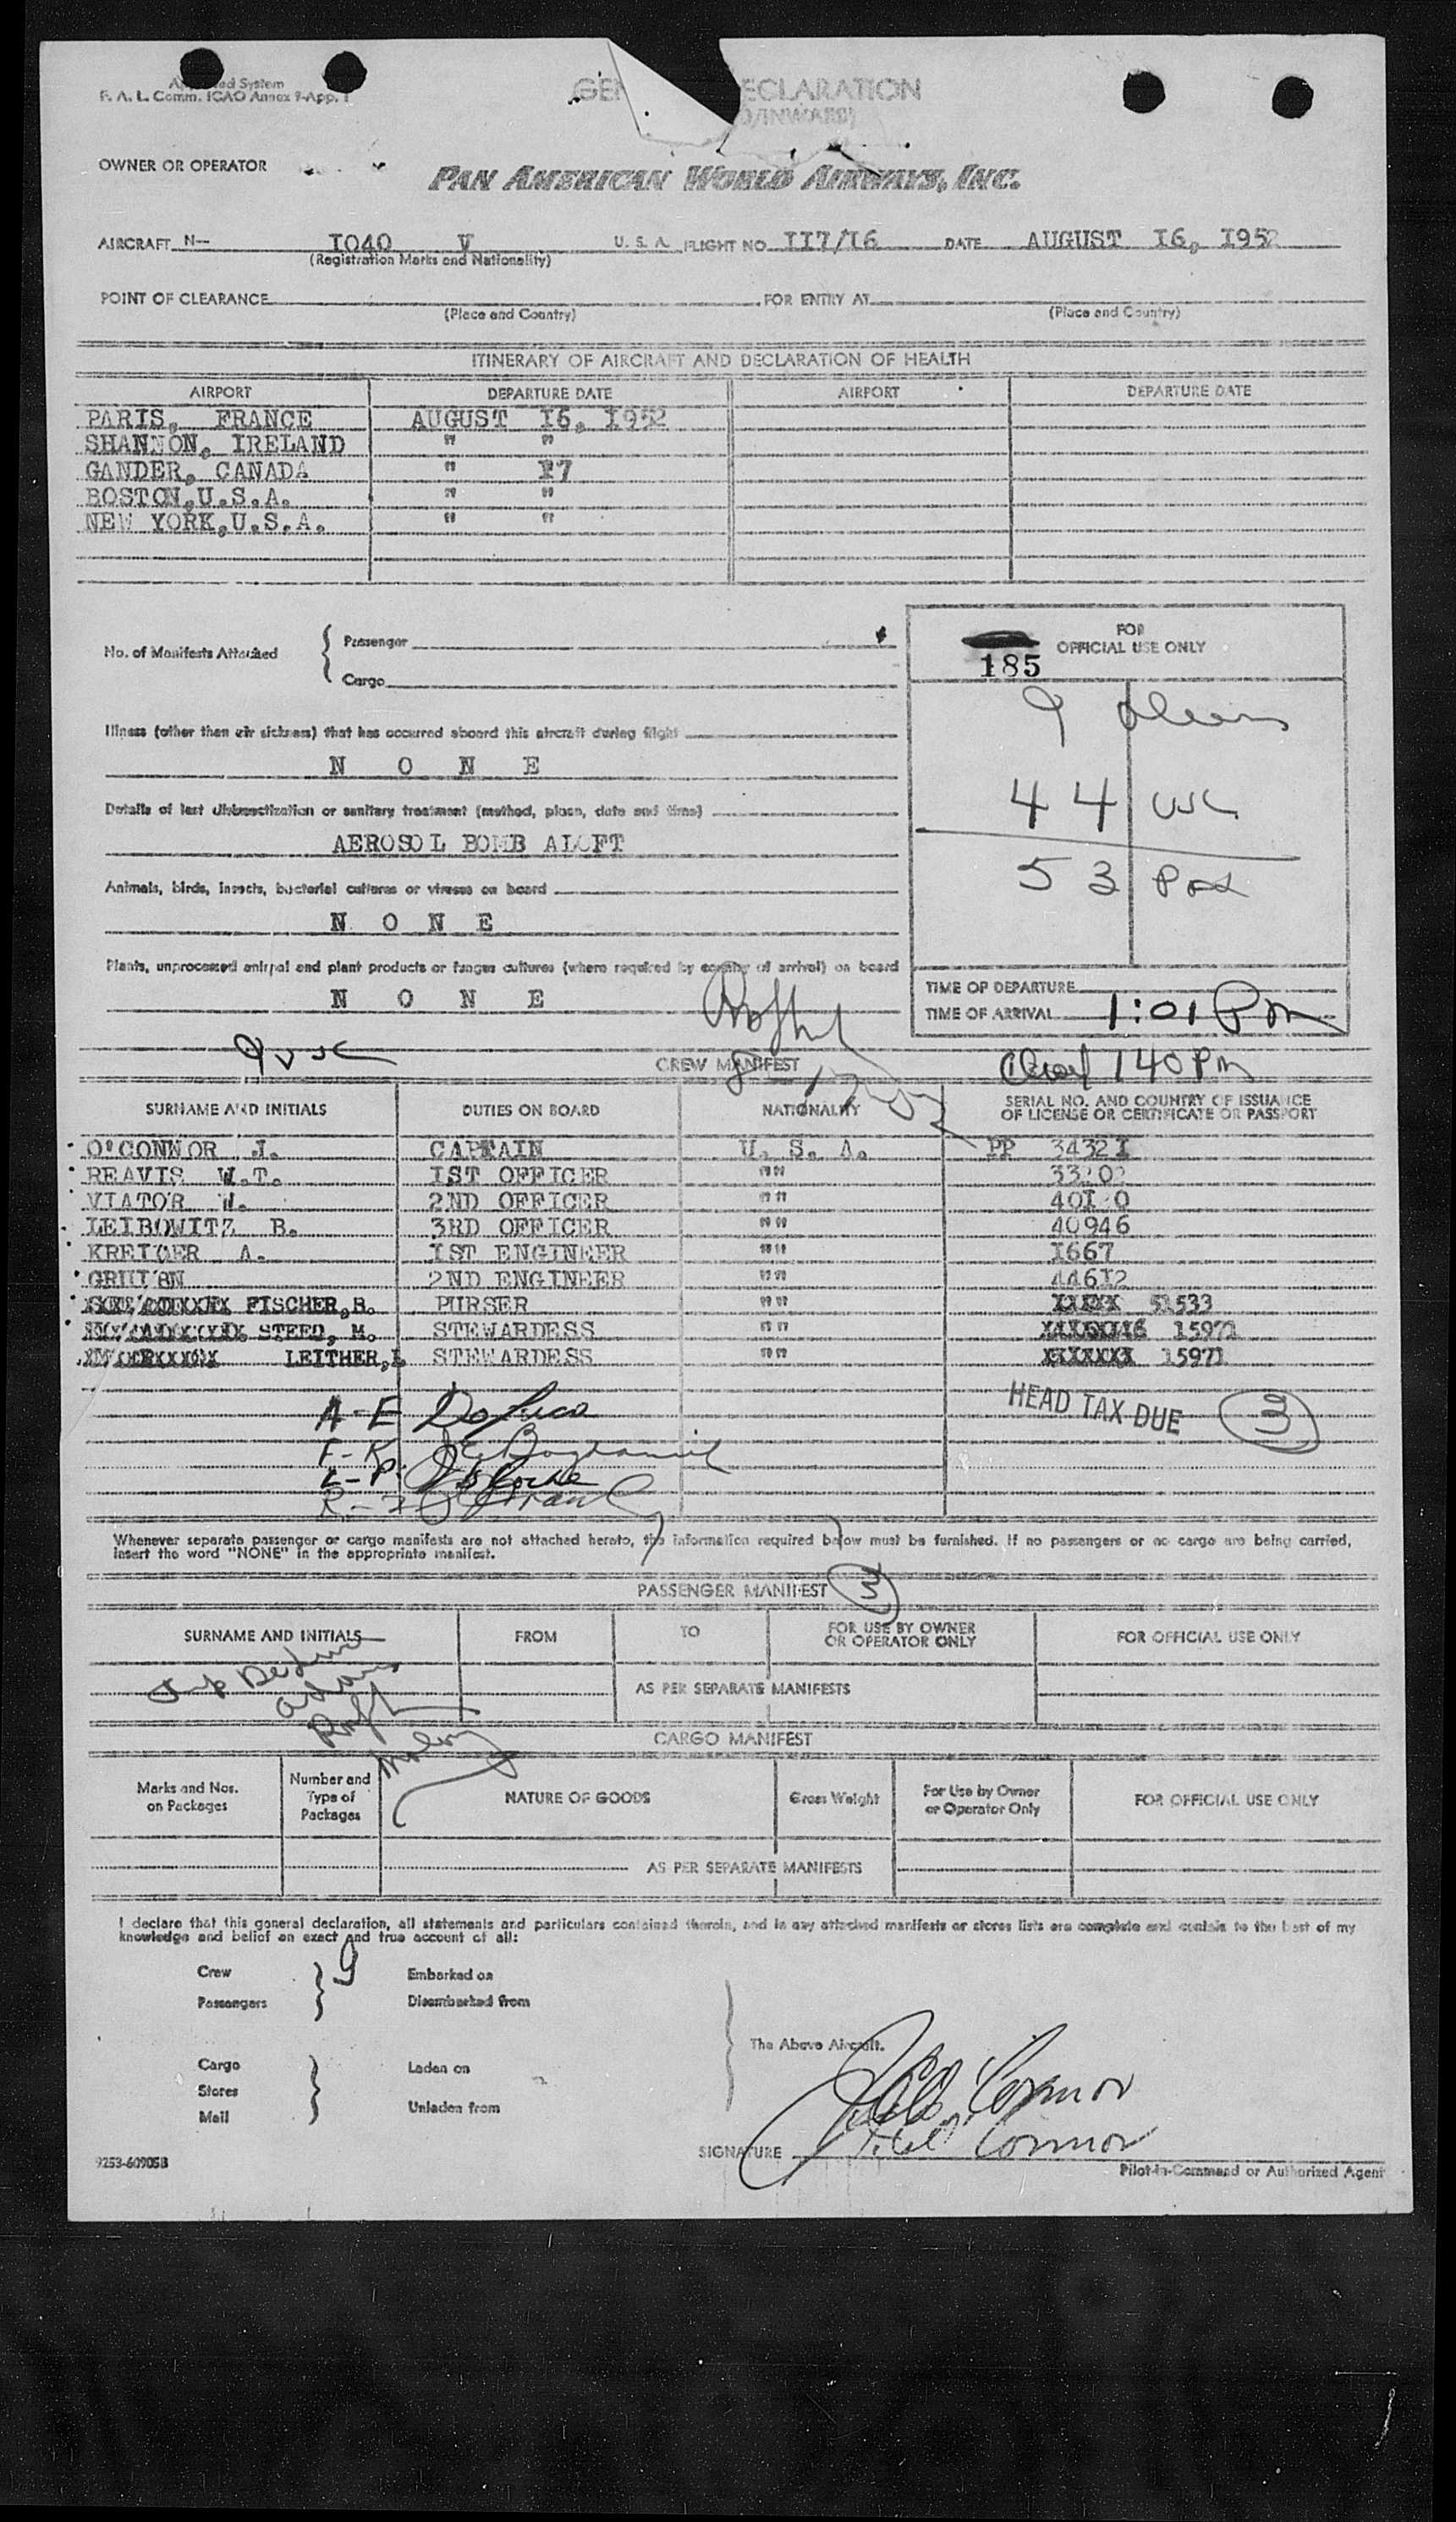 F. A. L. Comm. ICAO Annex 9-App. 1
ECLARATION
OWNER OR OPERATOR
PAN AMERICAN WORLD AIRWAYS, INC.
AIRCRAFT N— I040 V U. S. A. FLIGHT NO. II7/I6 DATE AUGUST I6, I952
(Registration Marks and Nationality)
POINT OF CLEARANCE FOR ENTRY AT
(Place and Country) (Place and Country)
ITINERARY OF AIRCRAFT AND DECLARATION OF HEALTH
AIRPORT DEPARTURE DATE AIRPORT DEPARTURE DATE
PARIS, FRANCE AUGUST I6, I952
SHANNON, IRELAND " "
GANDER, CANADA " I7
BOSTON,U.S.A. " "
NEW YORK,U.S.A. " "
No. of Manifests Attached
Passenger
Cargo
FOR
OFFICIAL USE ONLY
185
9
44 USC
53
Illness (other than air sickness) that has occurred aboard this aircraft during flight
N O N E
Details of last disinsectization or sanitary treatment (method, place, date and time)
AEROSOL BOMB ALOFT
Animals, birds, insects, bacterial cultures or viruses on board
N O N E
Plants, unprocessed animal and plant products or fungus cultures (where required by country of arrival) on board
N O N E
TIME OF DEPARTURE
TIME OF ARRIVAL 1:01 Pm
9 usc
CREW MANIFEST
140 Pm
SURNAME AND INITIALS DUTIES ON BOARD NATIONALITY SERIAL NO. AND COUNTRY OF ISSUANCE
OF LICENSE OR CERTIFICATE OR PASSPORT
O'CONNOR J. CAPTAIN U. S. A. PP 3432I
REAVIS W.T. IST OFFICER ""
VIATOR W. 2ND OFFICER ""
LEIBOWITZ B. 3RD OFFICER "" 40946
A. IST ENGINEER "" I667
2ND ENGINEER "" 446I2
FISCHER,B. PURSER "" 51533
STEED, M. STEWARDESS "" 15971
LEITHER,L STEWARDESS "" 15971
HEAD TAX DUE 3
A-E
F-K
L-P
Whenever separate passenger or cargo manifests are not attached hereto, the information required below must be furnished. If no passengers or no cargo are being carried,
insert the word "NONE" in the appropriate manifest.
PASSENGER MANIFEST 3
SURNAME AND INITIALS FROM TO FOR USE BY OWNER
OR OPERATOR ONLY FOR OFFICIAL USE ONLY
AS PER SEPARATE MANIFESTS
CARGO MANIFEST
Marks and Nos.
on Packages
Number and
Type of
Packages
NATURE OF GOODS Gross Weight For Use by Owner
or Operator Only FOR OFFICIAL USE ONLY
AS PER SEPARATE MANIFESTS
I declare that this general declaration, all statements and particulars contained therein, and in any attached manifests or stores lists are complete and contain to the best of my
knowledge and belief an exact and true account of all:
Crew 9 Embarked on
Passengers Disembarked from
The Above Aircraft.
Cargo Laden on
Stores
Mail Unladen from
SIGNATURE
Pilot-in-Command or Authorized Agent
9253-60905B